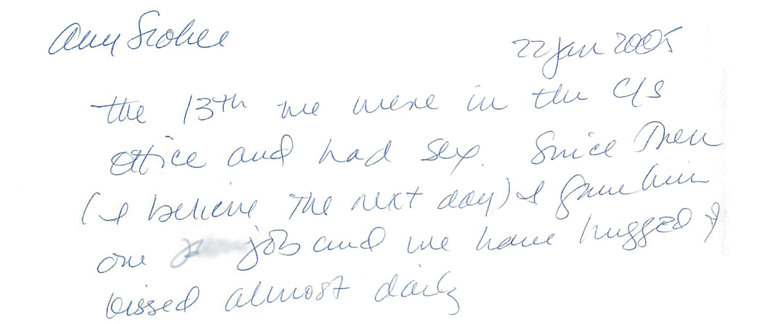 Amy 22 Jan 2005
the 13th we were in the C/S
office and had sex. Since then
(I believe the next day) I gave him
one job and we have hugged &
kissed almost daily